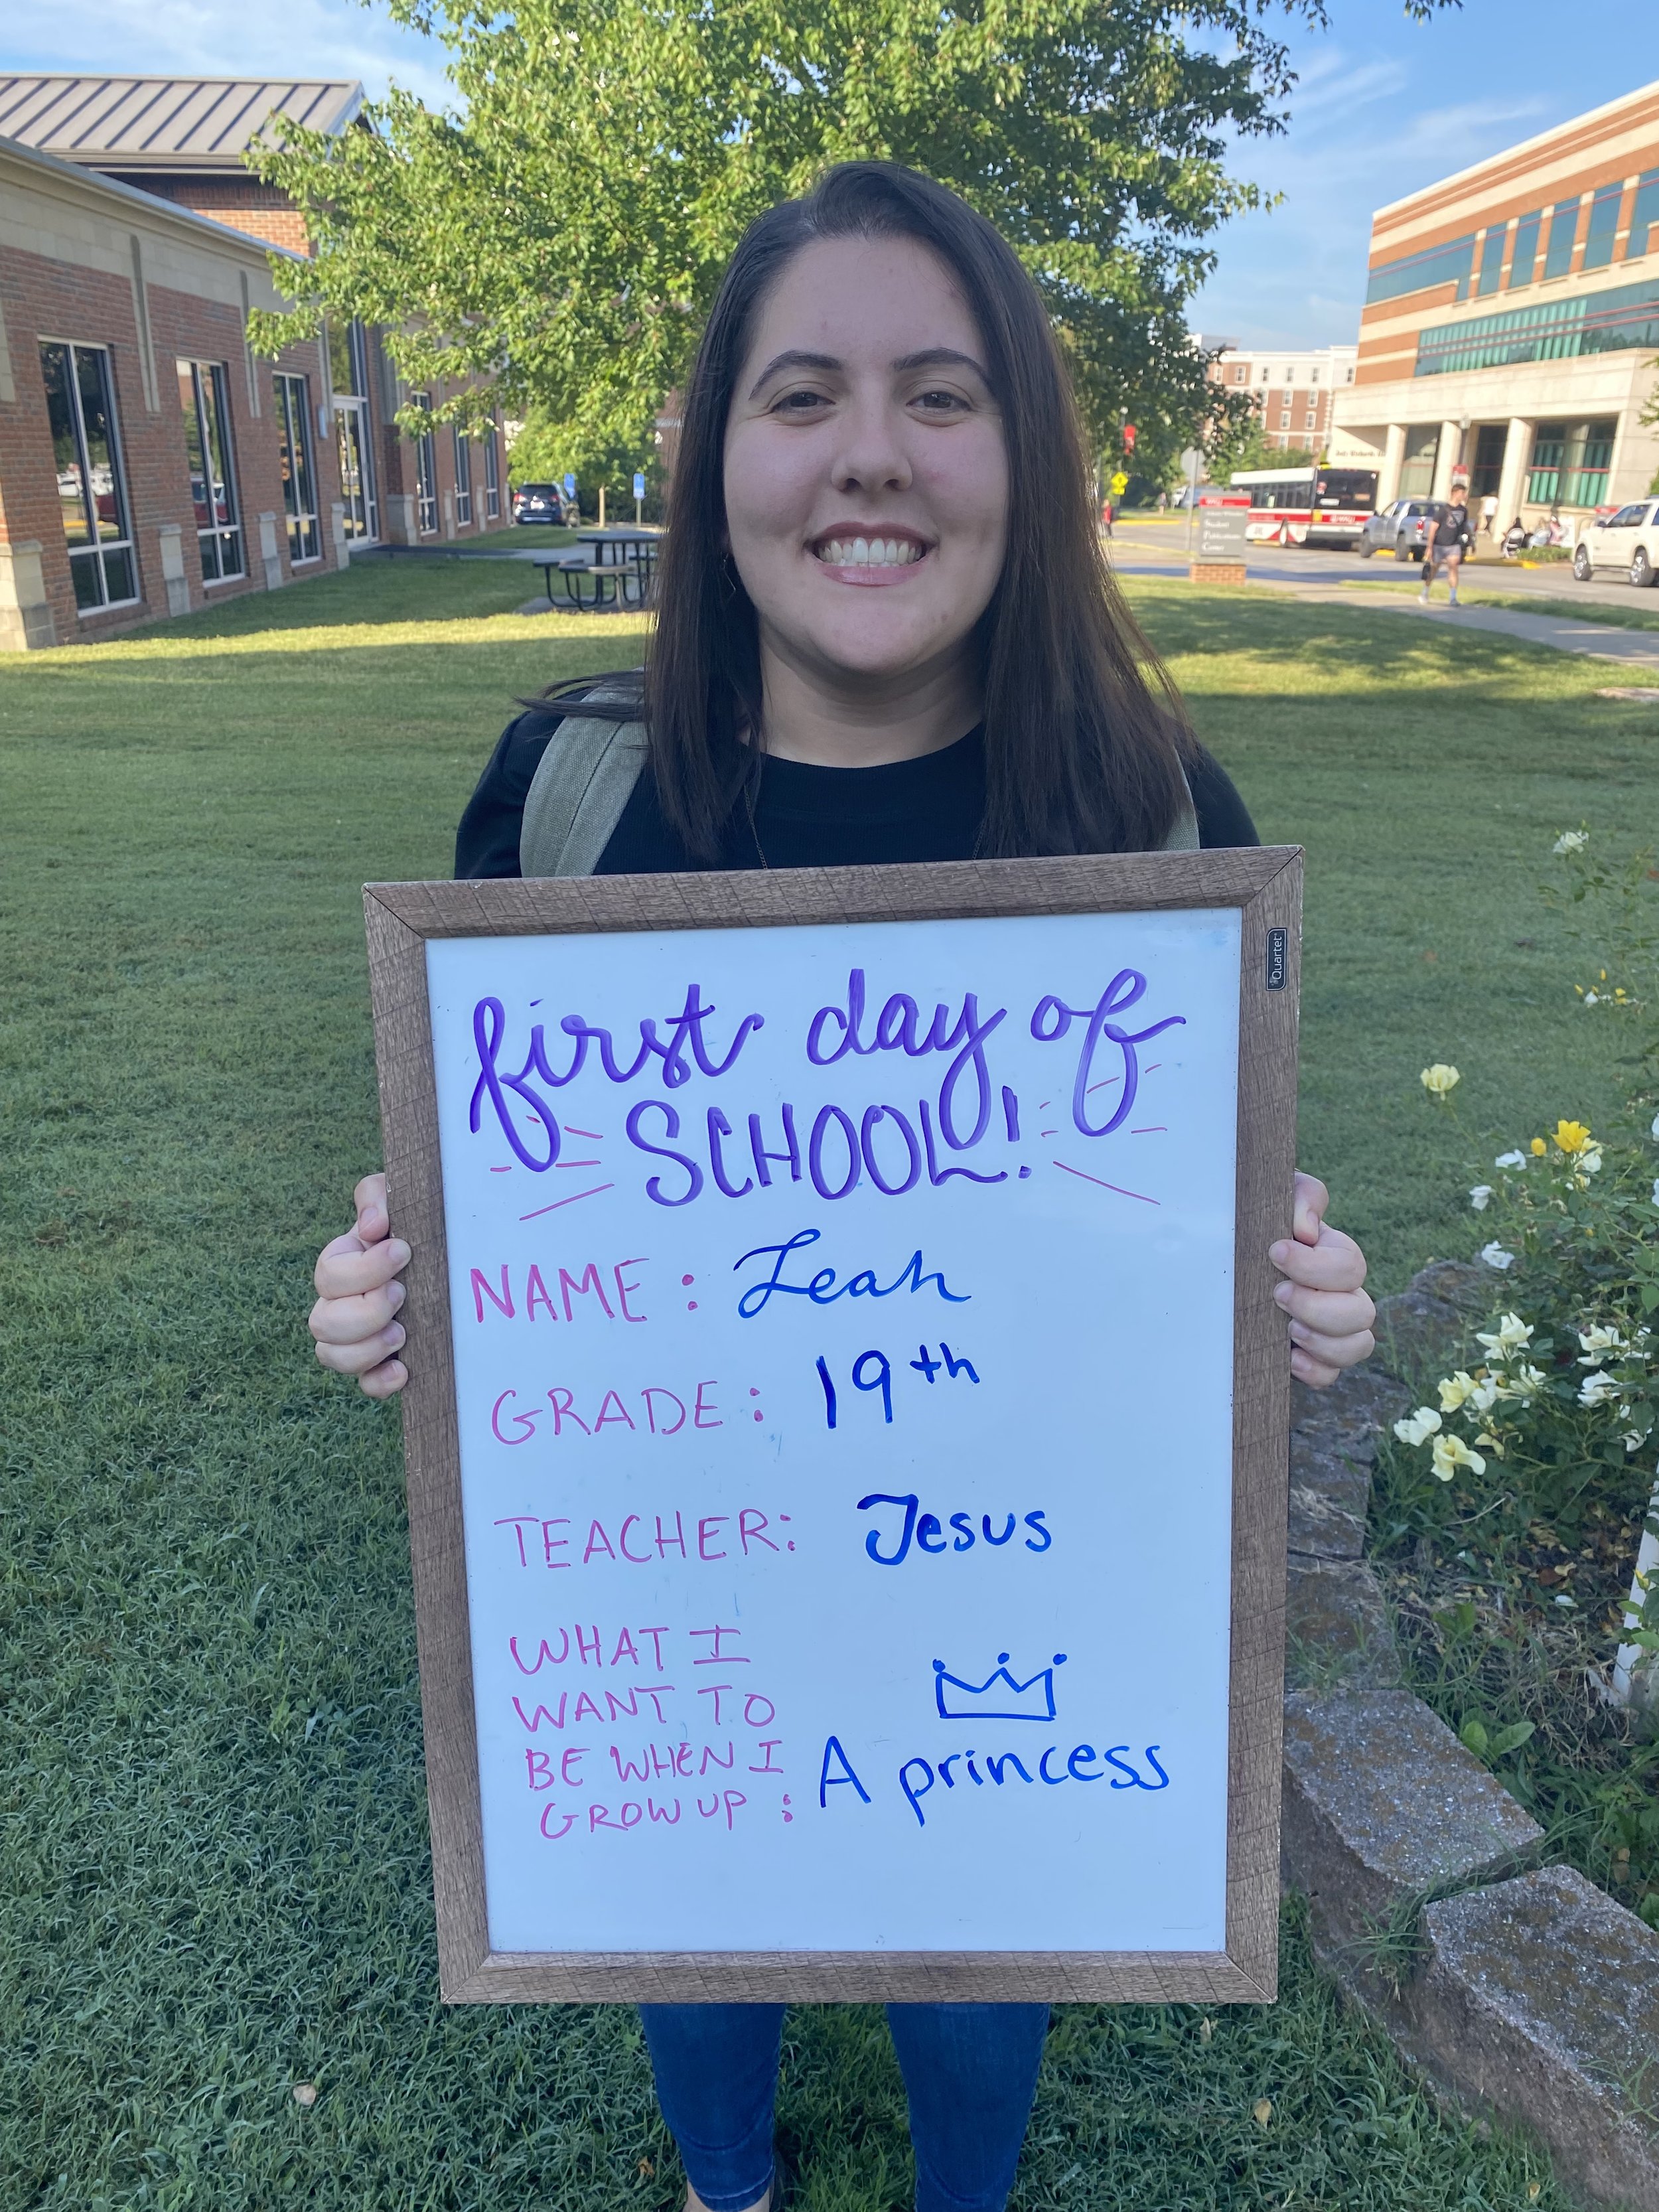 Student
Publications
Center
Quartet
first day of
SCHOOL!
NAME: Leah
GRADE: 19th
TEACHER: Jesus
WHAT I
WANT TO
BE WHEN I
GROW UP: A princess